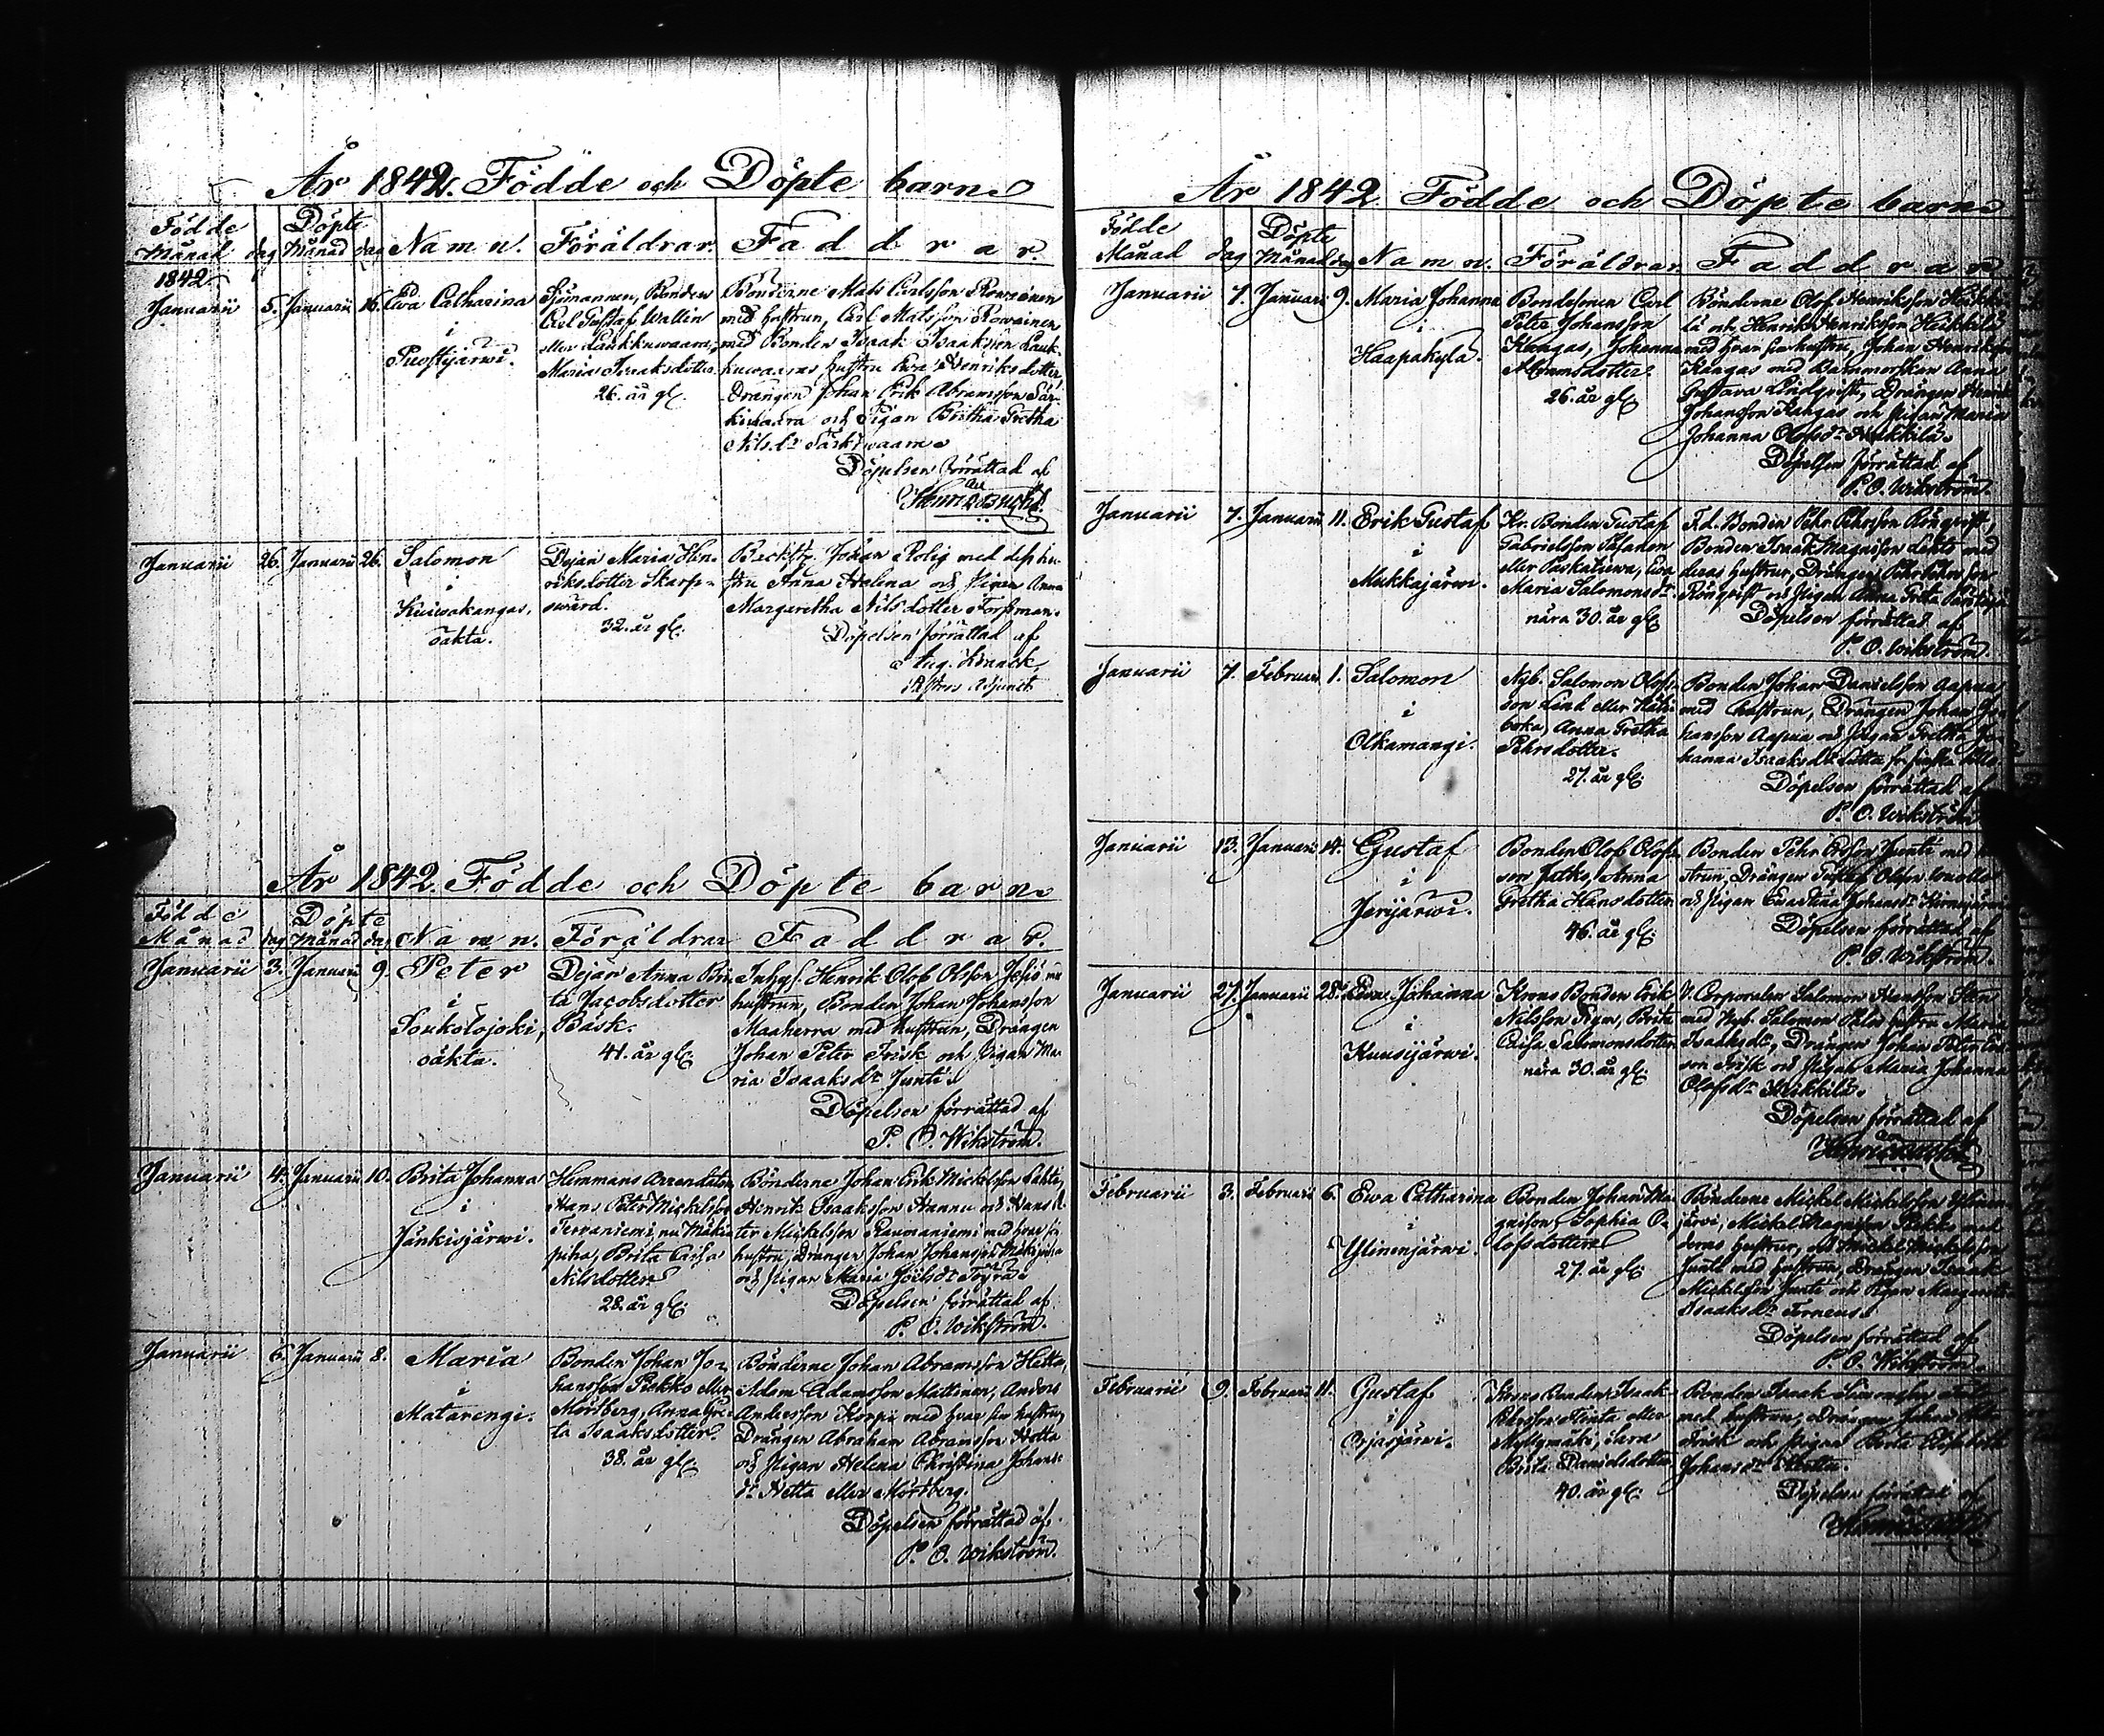 År 1842. Födde och Döpte barn
Födde Månad dag Döpte Månad dag Namn. Föräldrar. Faddrar.
1842.
Januarii 5. Januarii 16. Ewa Catharina
i
Puostijärwi.
Sjömannen, Bonden
Carl Gustaf Wallin
eller Laukkuwaara,
Maria Isaaksdotter.
26. år gl.
Bönderne Mats Carlsson Rowainen
med hustrun, Carl Matsson Rowainen
med Bonden Isaak Isaaksson Lauk-
kuwaaras hustru Ewa Henriksdotter
Drängen Johan Erik Abramsson Sär-
kiwaara och Pigan Britha Gretha
Nilsdr Särkiwaara.
Döpelsen förrättad af
Januarii 26. Januarii 26. Salomon
i
Kuiwakangas,
oäkta.
Dejan Maria Hen-
riksdotter Skarp-
swärd.
32. år gl.
Backstr. Johan Rolig med dess hu-
stru Anna Helena och Pigan Anna
Margaretha Nils dotter Forssman.
Döpelsen förrättad af
Aug. Linnäck
Adjunct
År 1842. Födde och Döpte barn
Födde Månad dag Döpte Månad dag Namn. Föräldrar Faddrar.
Januarii 3. Januarii 9. Peter
i
Soukolojoki,
oäkta.
Dejan Anna Bri-
ta Jacobsdotter
Bäsk.
41. år gl.
Inhys. Henrik Olof Olsson Jesiö m
hustrun, Bonden Johan Johansson
Maaherra med hustrun, Drängen
Johan Peter Frisk och Pigan Ma-
ria Isaaksdr Junti.
Döpelsen förrättad af
P. O. Wikström.
Januarii 4. Januarii 10. Brita Johanna
i
Jänkisjärwi.
Hemmans Arrendatorn
Hans Peter Mickelsson
Terwaniemi, nu Mäkin
piha, Brita Caisa
Nilsdotter
28. år gl.
Bönderne Johan Erik Mickelsson Lahti,
Henrik Isaaksson Hannu och Hans Pe-
ter Mickelsson Rauwaniemi med hvar sin
hustru, Drängen Johan Johansson
och Pigan Maria Joelsdr Töyrä.
Döpelsen förrättad af
P. O. Wikström.
Januarii 6. Januarii 8. Maria
i
Matarengi.
Bonden Johan Jo-
hansson Piekko eller
Mörtberg, Anna Gre-
ta Isaaksdotter.
38. år gl.
Bönderne Johan Abramsson Hetta,
Adam Adamsson Mattinen, Anders
Andersson Korpi med hvar sin hustru,
Drängen Abraham Abramsson Hetta
och Pigan Helena Christina Johans-
dr Hetta eller Mörtberg.
Döpelsen förrättad af
P. O. Wikström.
År 1842 Födde och Döpte barn
Födde Månad dag Döpte Månad dag Namn. Föräldrar. Faddrar
Januarii 7. Januarii 9. Maria Johanna
i
Haapakylä.
Bondesonen Carl
Peter Johansson
Kangas, Johanna
Monsdotter.
26. år gl.
Bönderne Olof Henriksson Heikki-
lä och Henrik Henriksson Heikkilä
med hvar sin hustru, Johan Henriksson
Kangas med Barnmorskan Anna
Gustava Lindqvist, Drängen Henrik
Johansson Kangas och Pigan Maria
Johanna Olofsdr Heikkilä.
Döpelsen förrättad af
P. O. Wikström.
Januarii 7. Januarii 11. Erik Gustaf
i
Mukkajärwi.
Kr. Bonden Gustaf
Gabrielsson
eller Paskatiewa, Ewa
Maria Salomonsdr
nära 30. år gl.
F.d. Bonden Pehr Pehrsson Rönqvist,
Bonden Isaak Magnisson Lahti med
deras hustrur, Drängen Pehr Pehrsson
Rönqvist och Pigan Anna Greta
Döpelsen förrättad af
P. O. Wikström.
Januarii 7. Februarii 1. Salomon
i
Olkamangi.
Nyb. Salomon Olofs-
son Lind eller
Anna Gretha
Pehrsdotter.
27. år gl.
Bonden Johan Danielsson Aapua
med hustrun, Drängen Johan Jo-
hansson Aapua och Pigan Gretha Jo-
hanna Isaaksdr
Döpelsen förrättad af
P. O. Wikström
Januarii 13. Januarii 14. Gustaf
i
Jerijärwi.
Bonden Olof Olofs-
son Jatko, Anna
Gretha Hansdotter.
46. år gl.
Bonden Pehr Ersson Junti med
strun, Drängen Gustaf Olsson
och Pigan Ewa Stina Johansdr
Döpelsen förrättad af
P. O. Wikström.
Januarii 27. Januarii 28. Ewa Johanna
i
Kuusijärwi.
Krono Bonden Erik
Nilsson Brita
Caisa Salomonsdotter
nära 30. år gl.
V. Corporalen Salomon Hansson Sten
med Nyb. Salomon hustru Maria
Isaaksdr, Drängen Johan Peter
son Frisk och Pigan Maria Johanna
Olofsdr Heikkilä.
Döpelsen förrättad af
Februarii 3. Februarii 6. Ewa Catharina
i
Ylinenjärwi.
Bonden Johan Ma-
gnisson, Sophia O-
lofsdotter
27. år gl.
Bönderne Mickel Mickelsson Ylinen-
järwi, Mickel Magnisson med
deras hustrur, och Mickel Mickelsson
Junti med hustrun, Drängen Isaak
Mickelsson Junti och Pigan Margareta
Isaaksdr Torneus.
Döpelsen förrättad af
P. O. Wikström.
Februarii 9. Februarii 11. Gustaf
i
Ojasjärwi.
Krono Bonden Isaak
Pehrsson eller
Myllymäki, Sara
Brita Danielsdotter,
40. år gl.
Bonden Isaak Simonsson
med hustrun, Drängen Johan
Frisk och Pigan Brita Elisabeth
Johansdr
Döpelsen förrättad af